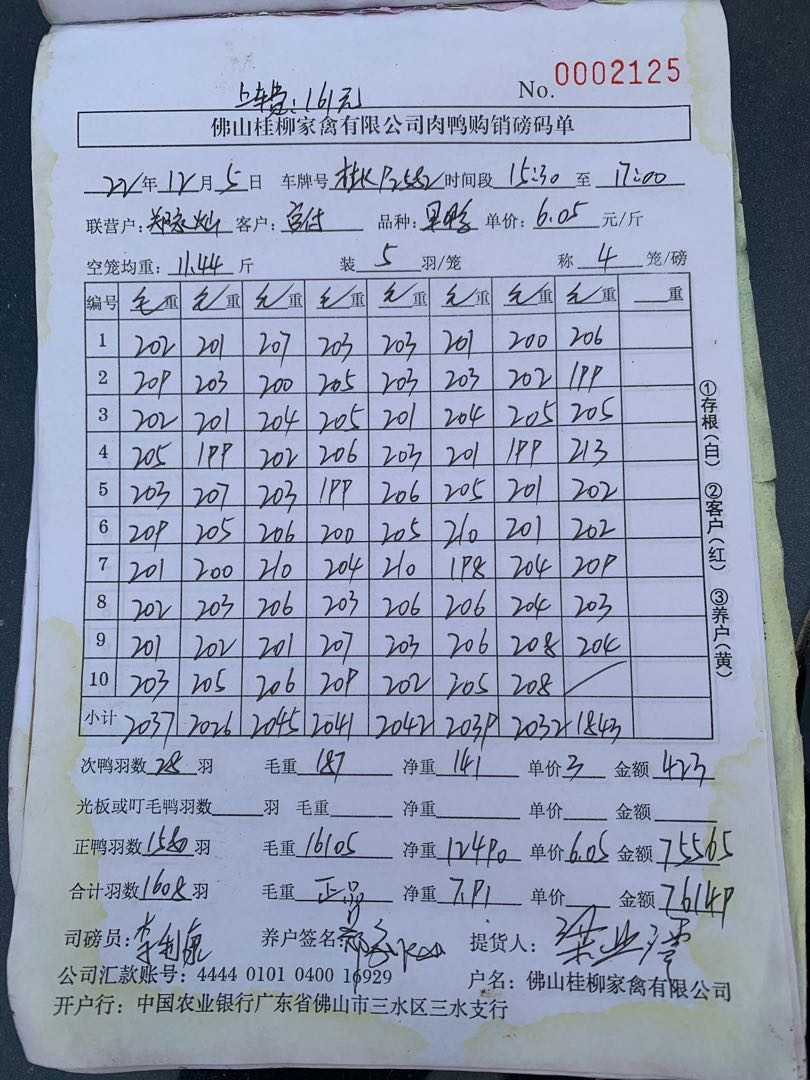 上车费:161元
No. 0002125
佛山桂柳家禽有限公司肉鸭购销磅码单
22年12月5日 车牌号桂KP2582时间段15:30至17:00
联营户:郑家灿 客户: 品种: 单价:6.05元/斤
空笼均重:11.44斤 装5羽/笼 称4笼/磅
编号 毛重 毛重 毛重 毛重 毛重 毛重 毛重 毛重 重
1 202 201 207 203 203 201 200 206
2 209 203 200 205 203 203 202 199
3 202 201 204 205 201 204 205 205
4 205 199 202 206 203 201 199 213
5 203 207 203 199 206 205 201 202
6 209 205 206 200 205 210 201 202
7 201 200 210 204 210 198 204 209
8 202 203 206 203 206 206 204 203
9 201 202 201 207 203 206 208 204
10 203 205 206 209 202 205 208
小计 2037 2026 2045 2041 2042 2039 2032 1843
次鸭羽数28羽 毛重187 净重141 单价3 金额423
光板或叮毛鸭羽数羽 毛重 净重 单价 金额
正鸭羽数1580羽 毛重16105 净重12490 单价6.05 金额75565
合计羽数1608羽 毛重正品 净重7.91 单价 金额76149
司磅员: 养户签名: 提货人:
公司汇款账号:4444 0101 0400 16929 户名:佛山桂柳家禽有限公司
开户行:中国农业银行广东省佛山市三水区三水支行
①存根(白) ②客户(红) ③养户(黄)